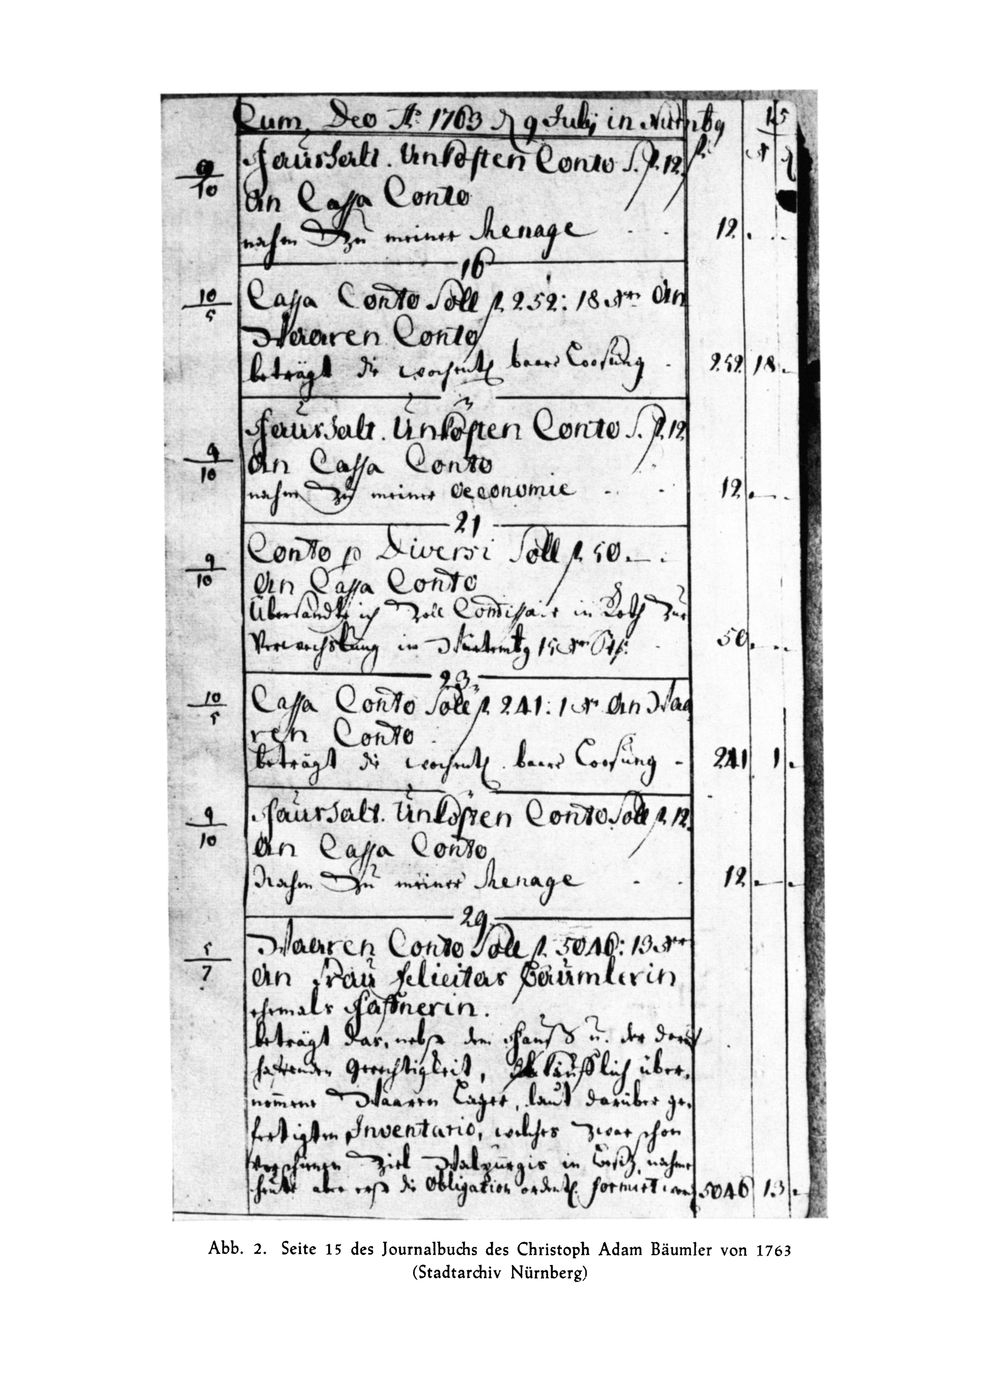 Cum Deo Ao 1763 9 July in Nürnbg 15
9/10 Haushalt. Unkosten Conto S. p. 12
an Cassa Conto
nahm zu meiner Menage 12
16
10/5 Cassa Conto Soll p 252: 18 xr an
Waaren Conto
beträgt die wochentl baare Loosung 252 18
9/10 Haushalt. Unkosten Conto S. p. 12
an Cassa Conto
nahm zu meiner Oeconomie 12
21
9/10 Conto p Diversi Soll p 50
an Cassa Conto
übersandte ich Zoll Comissair in Roth zur
Verwechslung in 50
23
10/5 Cassa Conto Soll p 241: 1 xr an Waa
ren Conto
beträgt die wochentl. baare Loosung 241 1
9/10 Haushalt. Unkosten Conto Soll p 12
an Cassa Conto
Nahm zu meiner Menage 12
29
5/7 Waaren Conto Soll p 5046: 13 xr
an Frau Felicitas Bäumlerin
ehemals Haffnerin.
beträgt das, nebst dem Hauss u. der darauf
haftenden Gerechtigkeit, käufflich über-
nommene Waaren Lager, laut darüber ge-
fertigten Inventario, welches zwar schon
Ziel Walpurgis in Besitz nahme
heute aber erst die Obligation ordentl. formiret 5046 13
Abb. 2. Seite 15 des Journalbuchs des Christoph Adam Bäumler von 1763
(Stadtarchiv Nürnberg)